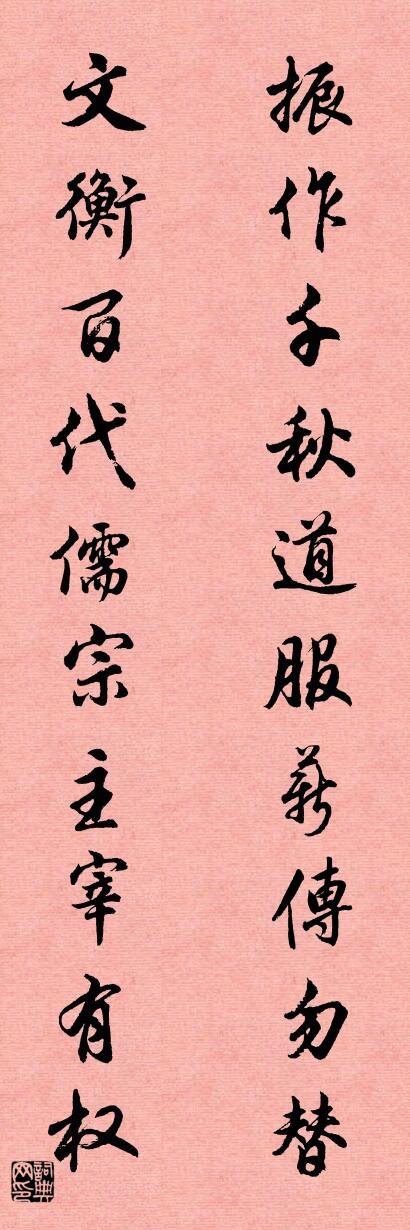 振作千秋道服薪傳勿替
文衡百代儒宗主宰有权
詞典網印